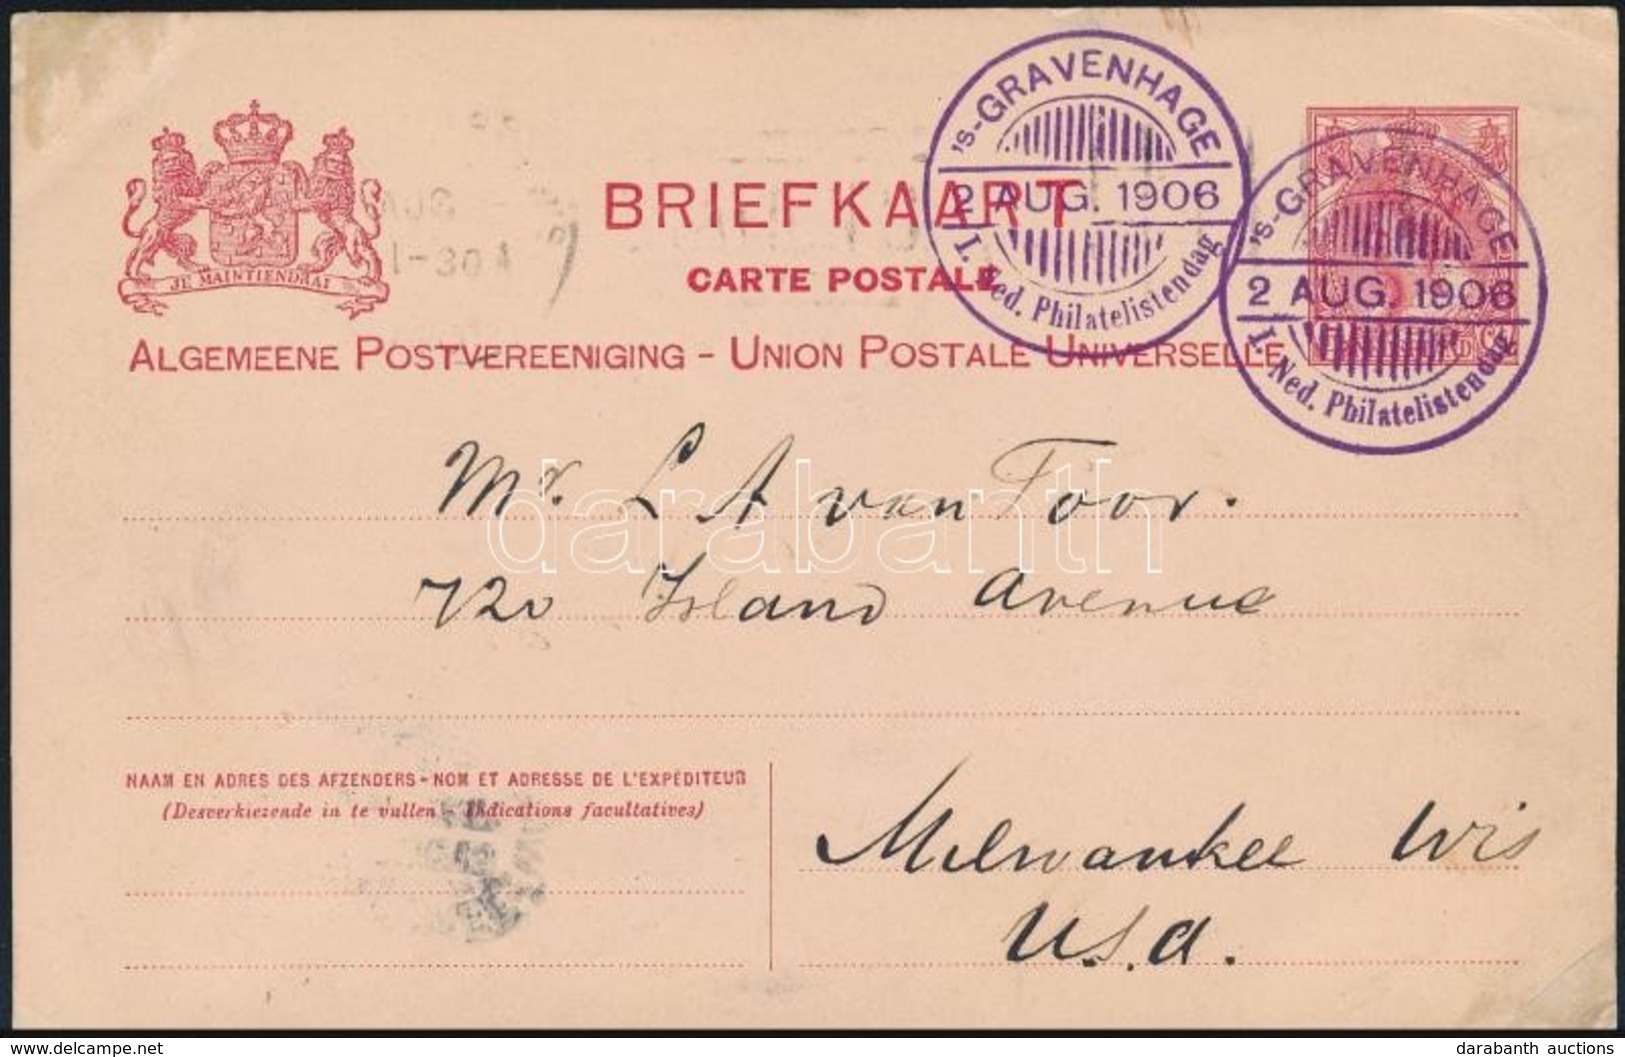 's-GRAVENHAGE
2 AUG. 1906
I. Ned. Philatelistendag
's-GRAVENHAGE
2 AUG. 1906
I. Ned. Philatelistendag
JE MAINTIENDRAI
BRIEFKAART
CARTE POSTALE
ALGEMEENE POSTVEREENIGING - UNION POSTALE UNIVERSELLE
AUG
1-30 A
Mr. L A van Toor.
darabanth
720 Island Avenue
NAAM EN ADRES DES AFZENDERS - NOM ET ADRESSE DE L'EXPÉDITEUR
(Desverkiezende in te vullen - Indications facultatives)
Milwaukee Wis
U.S.A.
delcampe.net
darabanth auctions